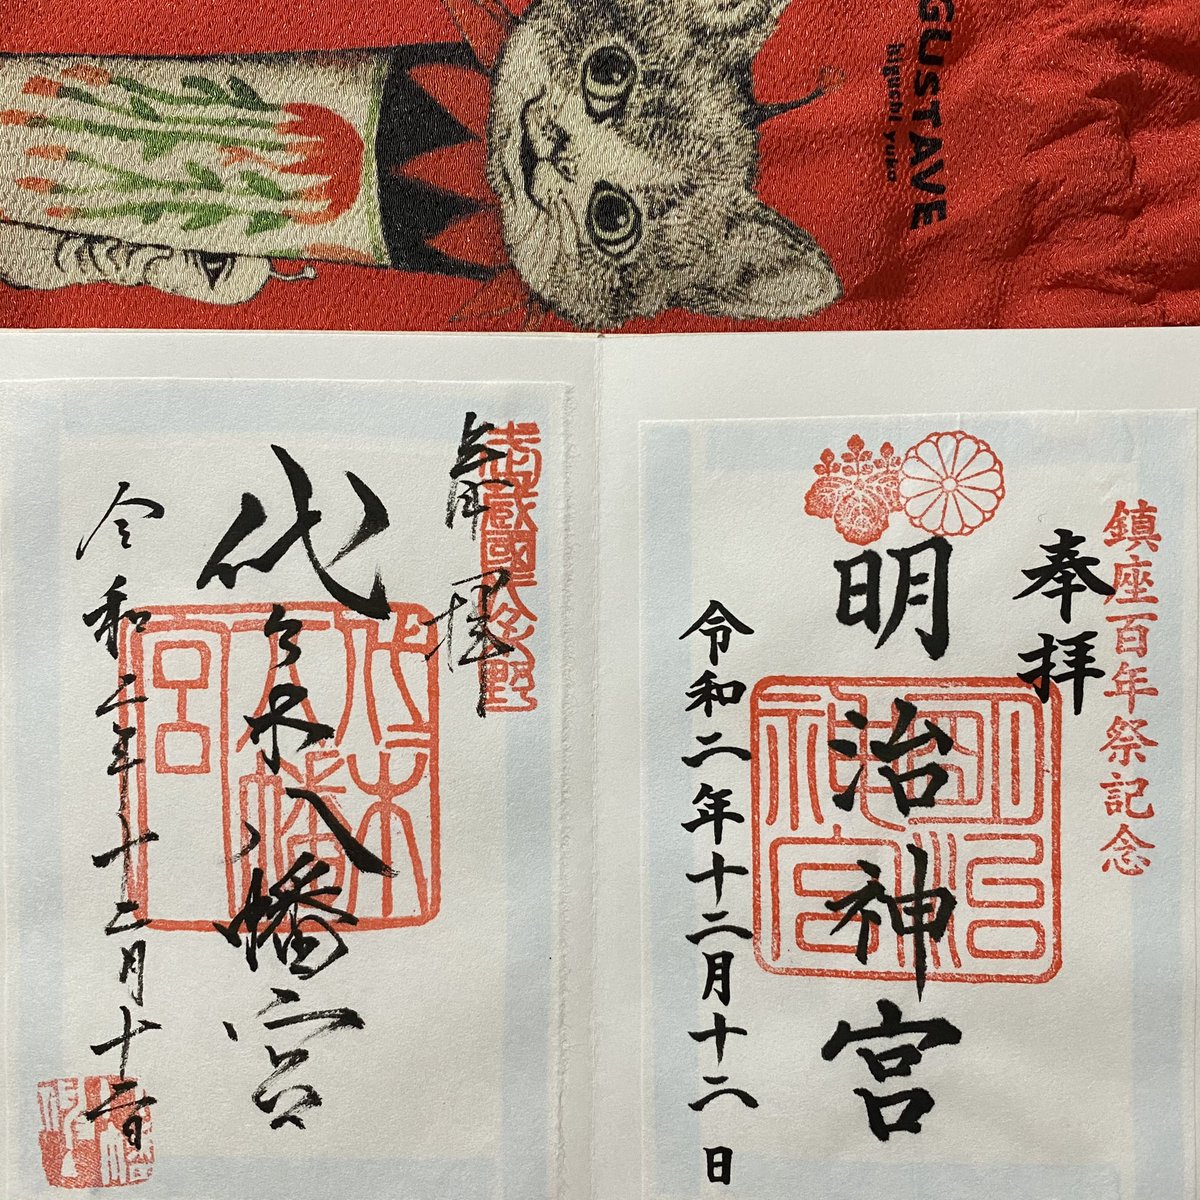 GUSTAVE
higuchi yuko
鎮座百年祭記念
奉拝
明治神宮
明治神宮
令和二年十二月十二日
奉拝
代々木八幡宮
代々木八幡宮
令和二年十二月十二日